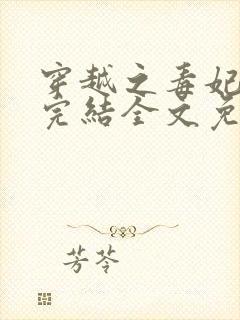 穿越之毒妃
完结全文免
芳苓